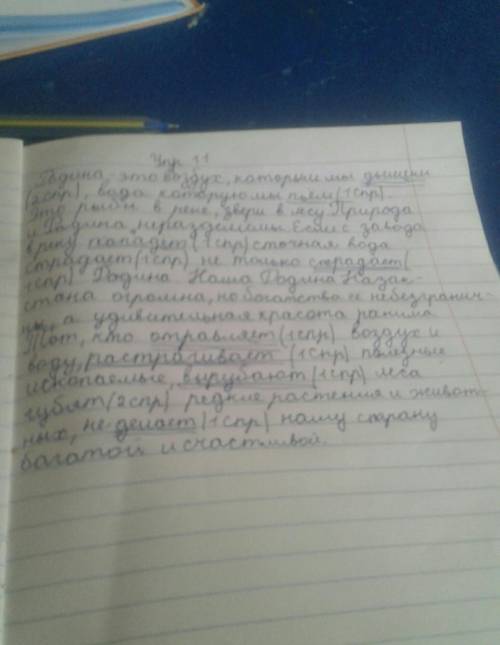 Упр 11
Родина, это воздух, который мы дышим
(2спр), вода которую мы пьём (1спр).
Это рыбы в реке, звери в лесу Природа
и Родина неразделимы. Если с завода
в реку попадет (1спр) сточная вода
страдает (1спр) не только страдает (
1спр) Родина Наша Родина Казах-
стана огромна, но богатство ее небезгранич-
ны, а удивительная красота ранима
Тот, кто отравляет (1спр) воздух и
воду, растрачивает (1спр) полезные
ископаемые, вырубают (1спр) леса
губят (2спр) редкие растения и живот-
ных, не делает (1спр) нашу страну
багатой и счастливой.